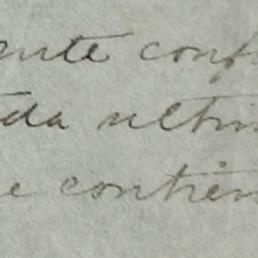 ente conf
da ultim
e contien